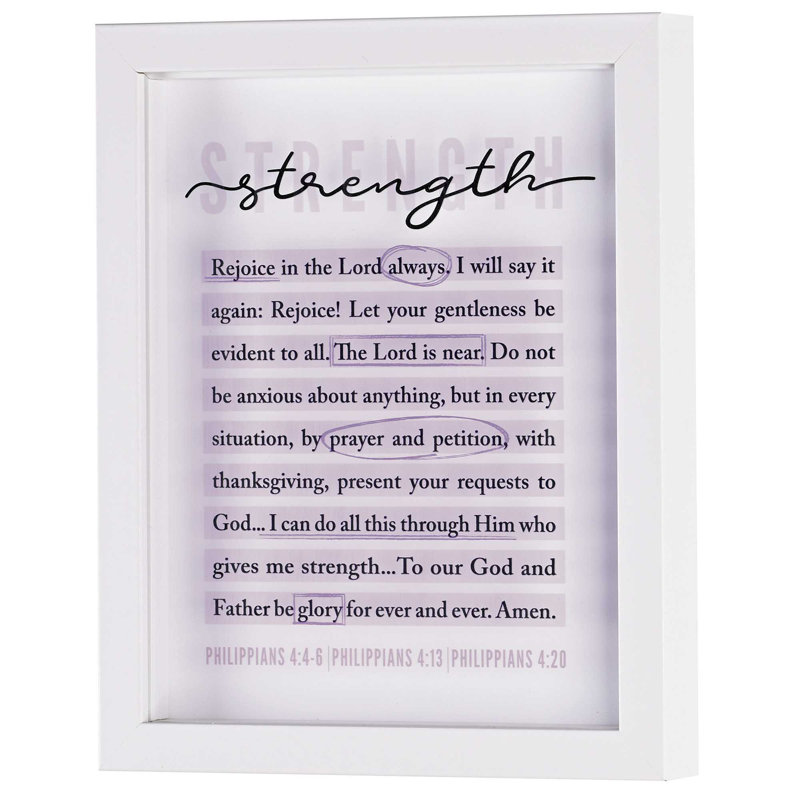 STRENGTH
strength
Rejoice in the Lord always. I will say it
again: Rejoice! Let your gentleness be
evident to all. The Lord is near. Do not
be anxious about anything, but in every
situation, by prayer and petition, with
thanksgiving, present your requests to
God... I can do all this through Him who
gives me strength...To our God and
Father be glory for ever and ever. Amen.
PHILIPPIANS 4:4-6 | PHILIPPIANS 4:13 | PHILIPPIANS 4:20